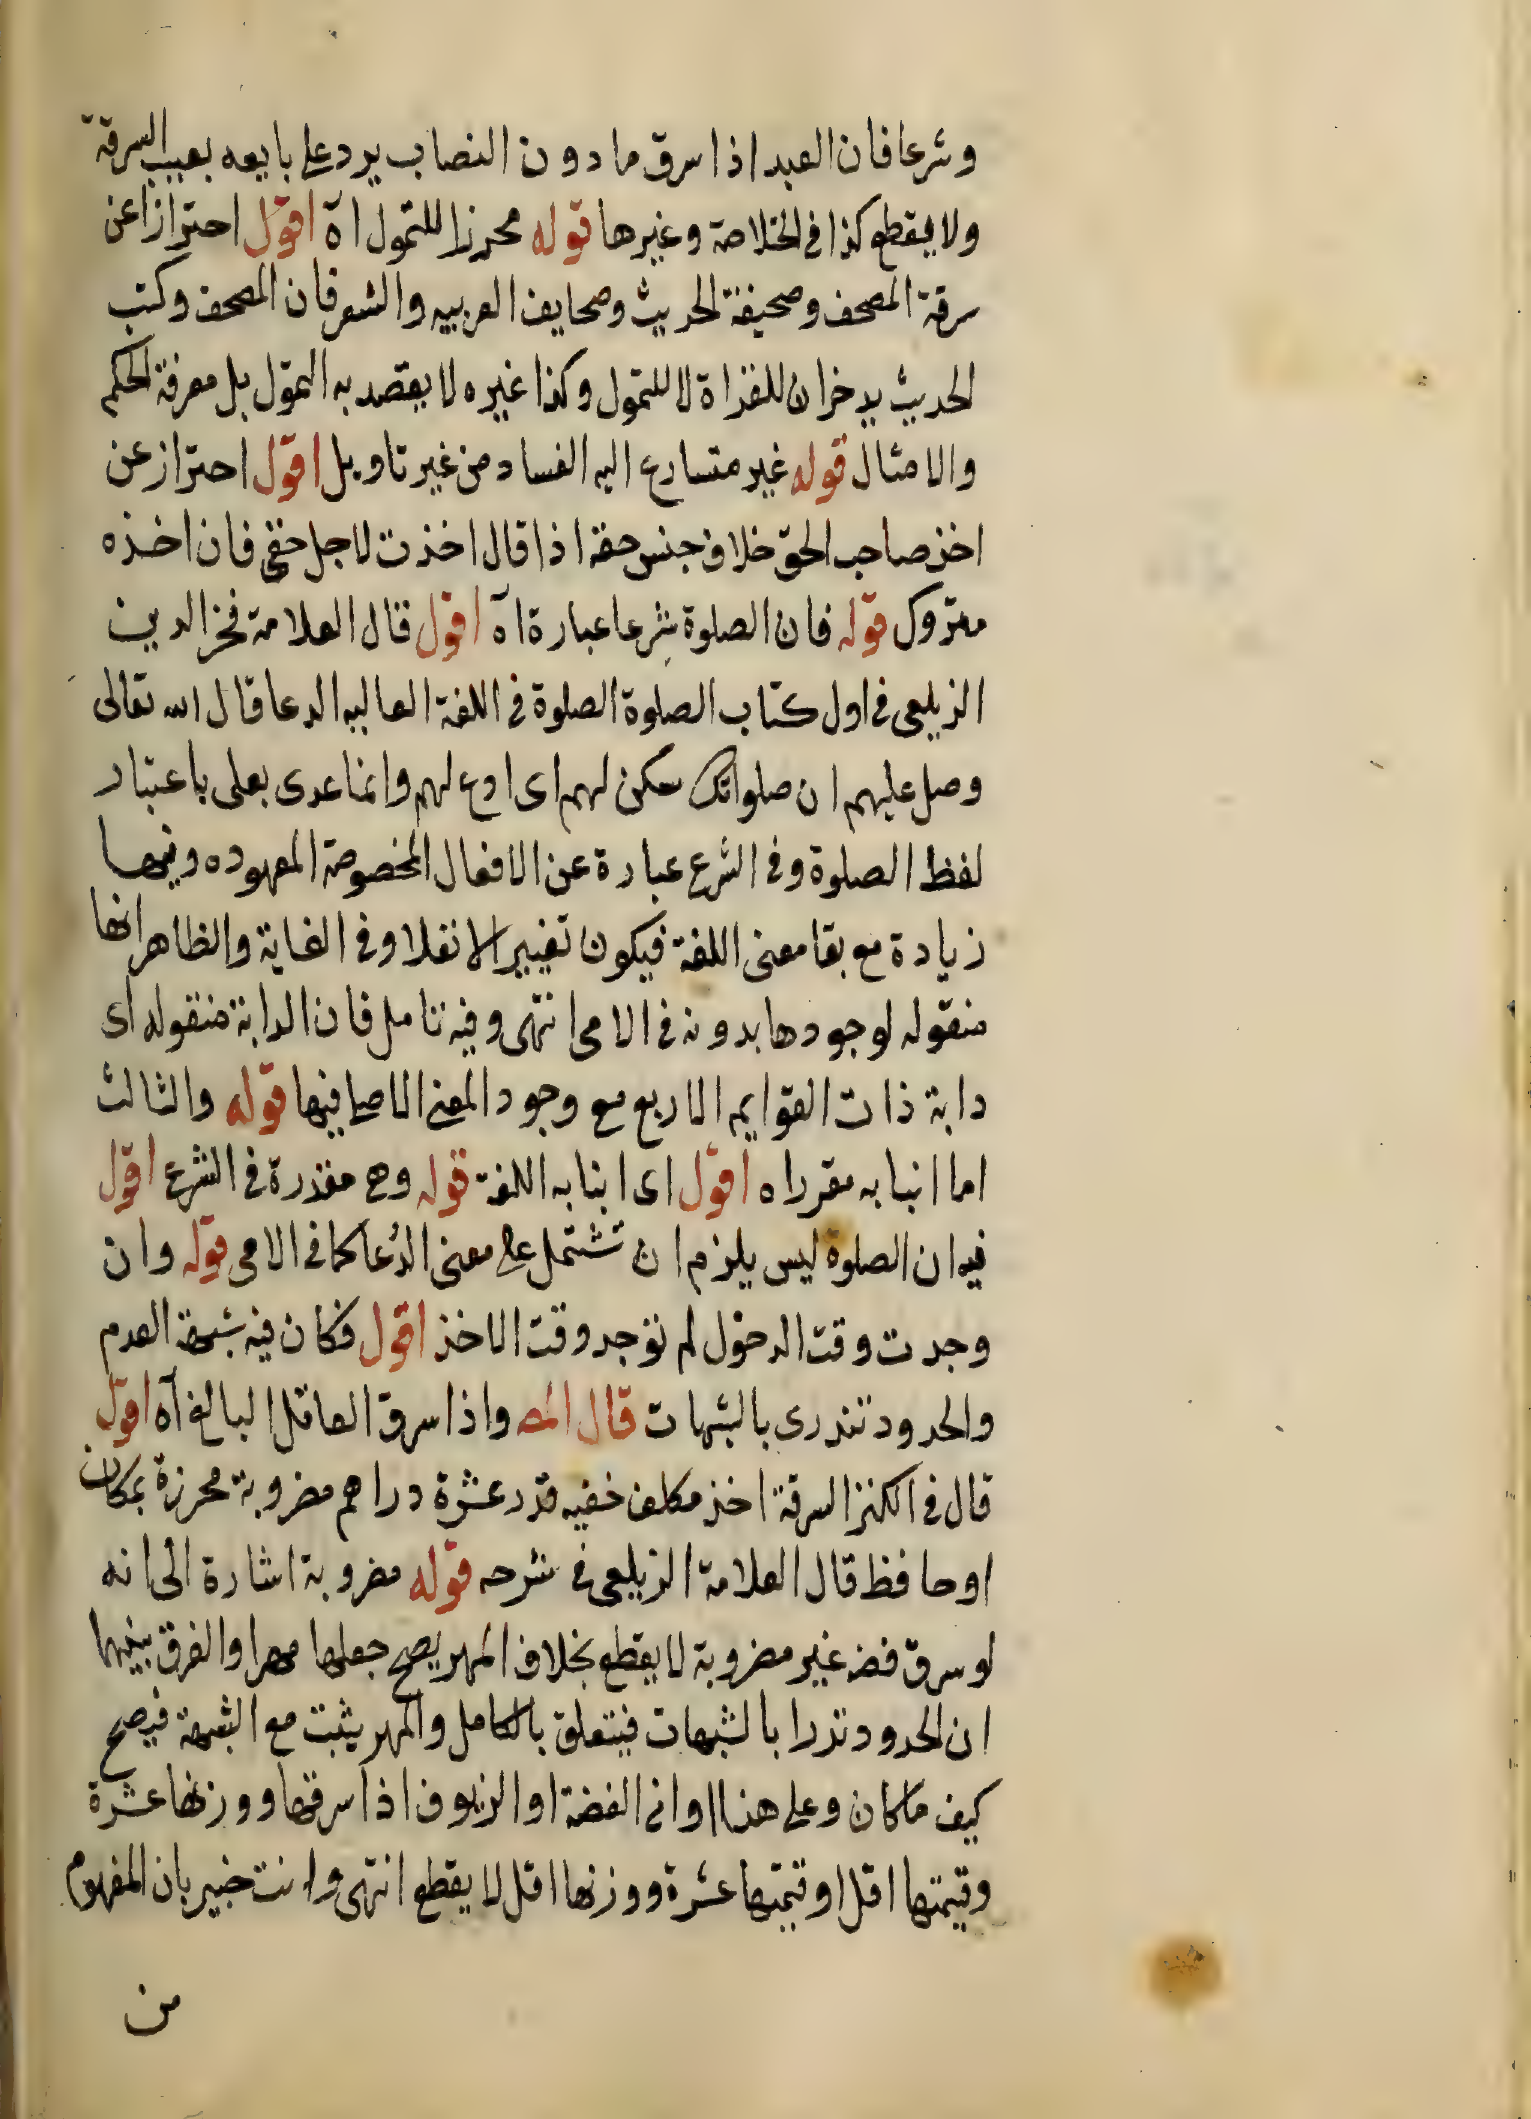 وشرعا فان العبد اذا سرق ما دون النصاب يرد على بايعه بعيب السرقة
ولا يقطع كذا في الخلاصة وغيرها قوله محرزا للتمول اه اقول احترازا عن
سرقة المصحف وصحيفة الحديث وصحايف العربيه والشعر فان المصحف وكتب
الحديث يدخران للقراة لا للتمول وكذا غيره لا يقصد به التمول بل معرفة الحكم
والامثال قوله غير متسارع اليه الفساد من غير تاويل اقول احتراز عن
اخذ صاحب الحق خلاف جنس حقه اذا قال اخذت لاجل حقي فان اخذه
متروك قوله فان الصلوة شرعا عبارة اه اقول قال العلامة فخر الدين
الزيلعي في اول كتاب الصلوة الصلوة في اللغة العاليه الدعا قال الله تعالى
وصل عليهم ان صلواتك سكن لهم اى ادع لهم وانما عدى بعلى باعتبار
لفظ الصلوة وفي الشرع عبارة عن الافعال المخصوصة المعهوده وفيها
زيادة مع بقا معنى اللغة فيكون تغييرا لا نقلا وفي الغاية والظاهر انها
منقوله لوجودها بدونه في الامى انتهى وفيه تامل فان الدابة منقوله اى
دابة ذات القوايم الاربع مع وجود المعنى الاصلي فيها قوله والثالث
اما انبا به مقررا ه اقول اى ابنا به اللغة قوله وهى مقدرة في الشرع اقول
فيه ان الصلوة ليس يلزم ان تشتمل على معنى الدُعا كما في الامى قوله وان
وجدت وقت الدخول لم توجد وقت الاخذ اقول فكان فيه شبهة العدم
والحدود تندرى بالشبهات قال المص واذا سرق العاقل البالغ اه اقول
قال في الكنز السرقة اخذ مكلف خفيه قدر عشرة دراهم مضروبة محرزة بمكان
او حافظ قال العلامة الزيلعي في شرحه قوله مضروبة اشارة الى انه
لو سرق فضه غير مضروبة لا يقطع بخلاف المهر يصح جعلها مهرا والفرق بينهما
ان الحدود تدرا بالشبهات فيتعلق بالكامل والمهر يثبت مع الشبهة فيصح
كيف ما كان وعلى هذا اوانى الفضة او الزيوف اذا سرقها ووزنها عشرة
وقيمتها اقل او قيمتها عشرة ووزنها اقل لا يقطع انتهى وانت خبير بان المفهوم
من